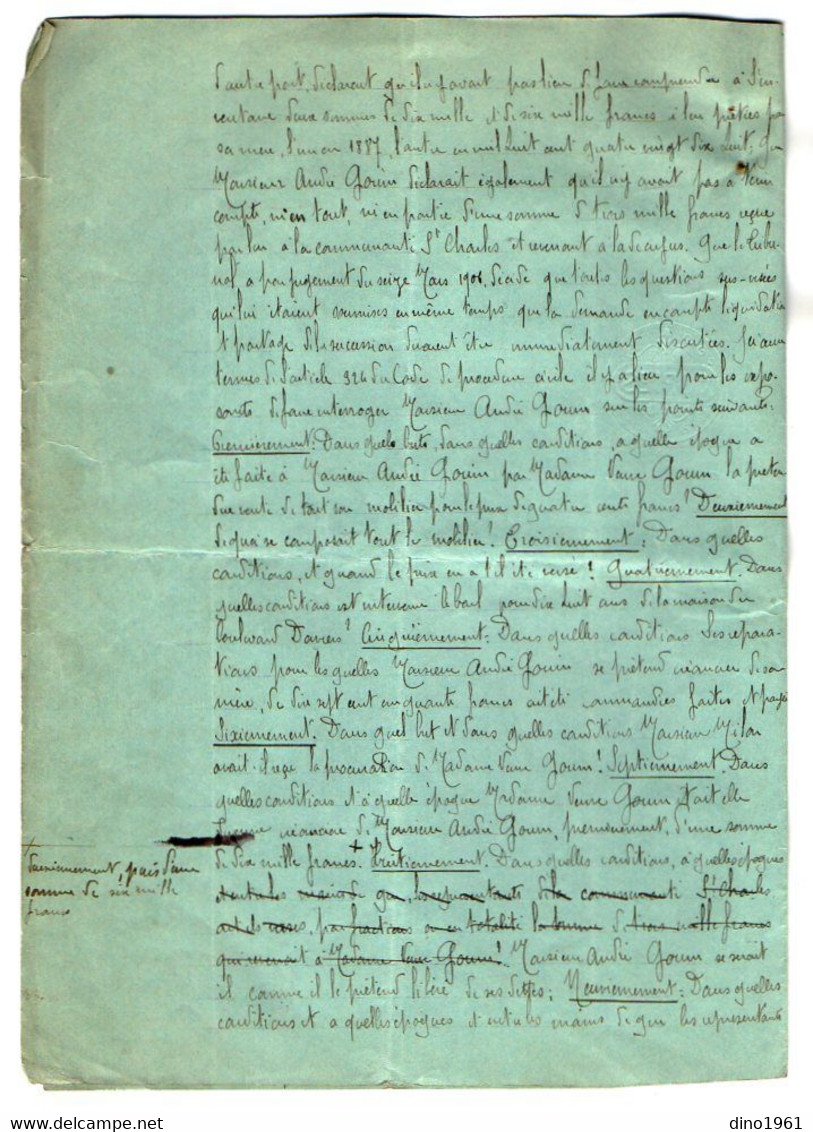 d'autre part, déclarant qu'il n'y avait pas lieu de faire comprendre à l'in-
ventaire deux sommes de dix mille et de six mille francs à leur prêtées par
sa mère, l'une en 1887, l'autre en mil huit cent quatre vingt dix huit; que
Monsieur André Gouin déclarait également qu'il n'y avait pas à tenir
compte, ni en tout, ni en partie d'une somme de trois mille francs reçue
par lui à la communauté St Charles et revenant à la decujus. Que le tribu-
nal a par jugement du seize Mars 1906, décidé que toutes les questions sus-visées
qui lui étaient soumises en même temps que la demande en compte liquidation
et partage de la succession seraient être immédiatement discutées. Qu'aux
termes de l'article 324 du Code de procédure civile il y a lieu pour les expo-
sants de faire interroger Monsieur André Gouin sur les points suivants:
Premièrement: Dans quels buts, dans quelles conditions, a quelle époque a
été faite à Monsieur André Gouin par Madame Veuve Gouin la préten
due vente de tout son mobilier pour le prix de quatre cents francs? Deuxièmement
de quoi se composait tout le mobilier? Troisièmement: Dans quelles
conditions, et quand le prix en a t'il été versé? Quatrièmement. Dans
quelles conditions est intervenu le bail pour dix huit ans de la maison du
boulevard Daviers? Cinquièmement: Dans quelles conditions les répara-
tions pour lesquelles Monsieur André Gouin se prétend créancier de sa
mère, de dix sept cent cinquante francs ont été commandées faites et payées
Sixièmement. Dans quel but et dans quelles conditions Monsieur Milon
avait-il reçu la procuration de Madame Veuve Gouin? Septièmement. Dans
quelles conditions et à quelle époque Madame Veuve Gouin était elle
créancière de Monsieur André Gouin, premièrement, d'une somme
de dix mille francs. + Huitièmement. Dans quelles conditions, à quelles époques
+ deuxièmement, puis d'une
somme de six mille
francs
et entre les mains de qui les représentants de la communauté St Charles
ont ils versé, par fractions ou en totalité la somme de trois mille francs
qui revenait à Madame Veuve Gouin? Monsieur André Gouin se serait
il comme il le prétend libéré de ses dettes; Neuvièmement: Dans quelles
conditions et a quelles époques et entre les mains de qui les représentants
dino1961